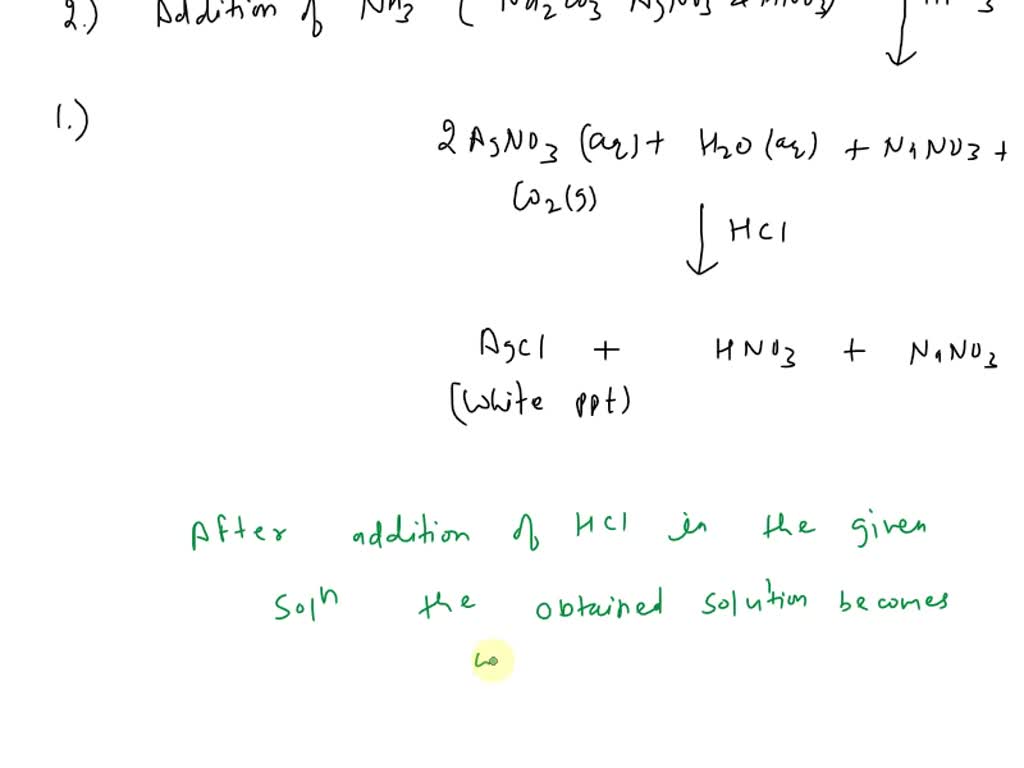 2.) Addition of NH3 ( Na2CO3 AgNO3 & HNO3)
1.)
2 AgNO3 (aq) + H2O (aq) + NaNO3 +
CO2(g)
↓ HCl
AgCl + HNO3 + NaNO3
(White ppt)
After addition of HCl in the given
Solh the obtained solution becomes